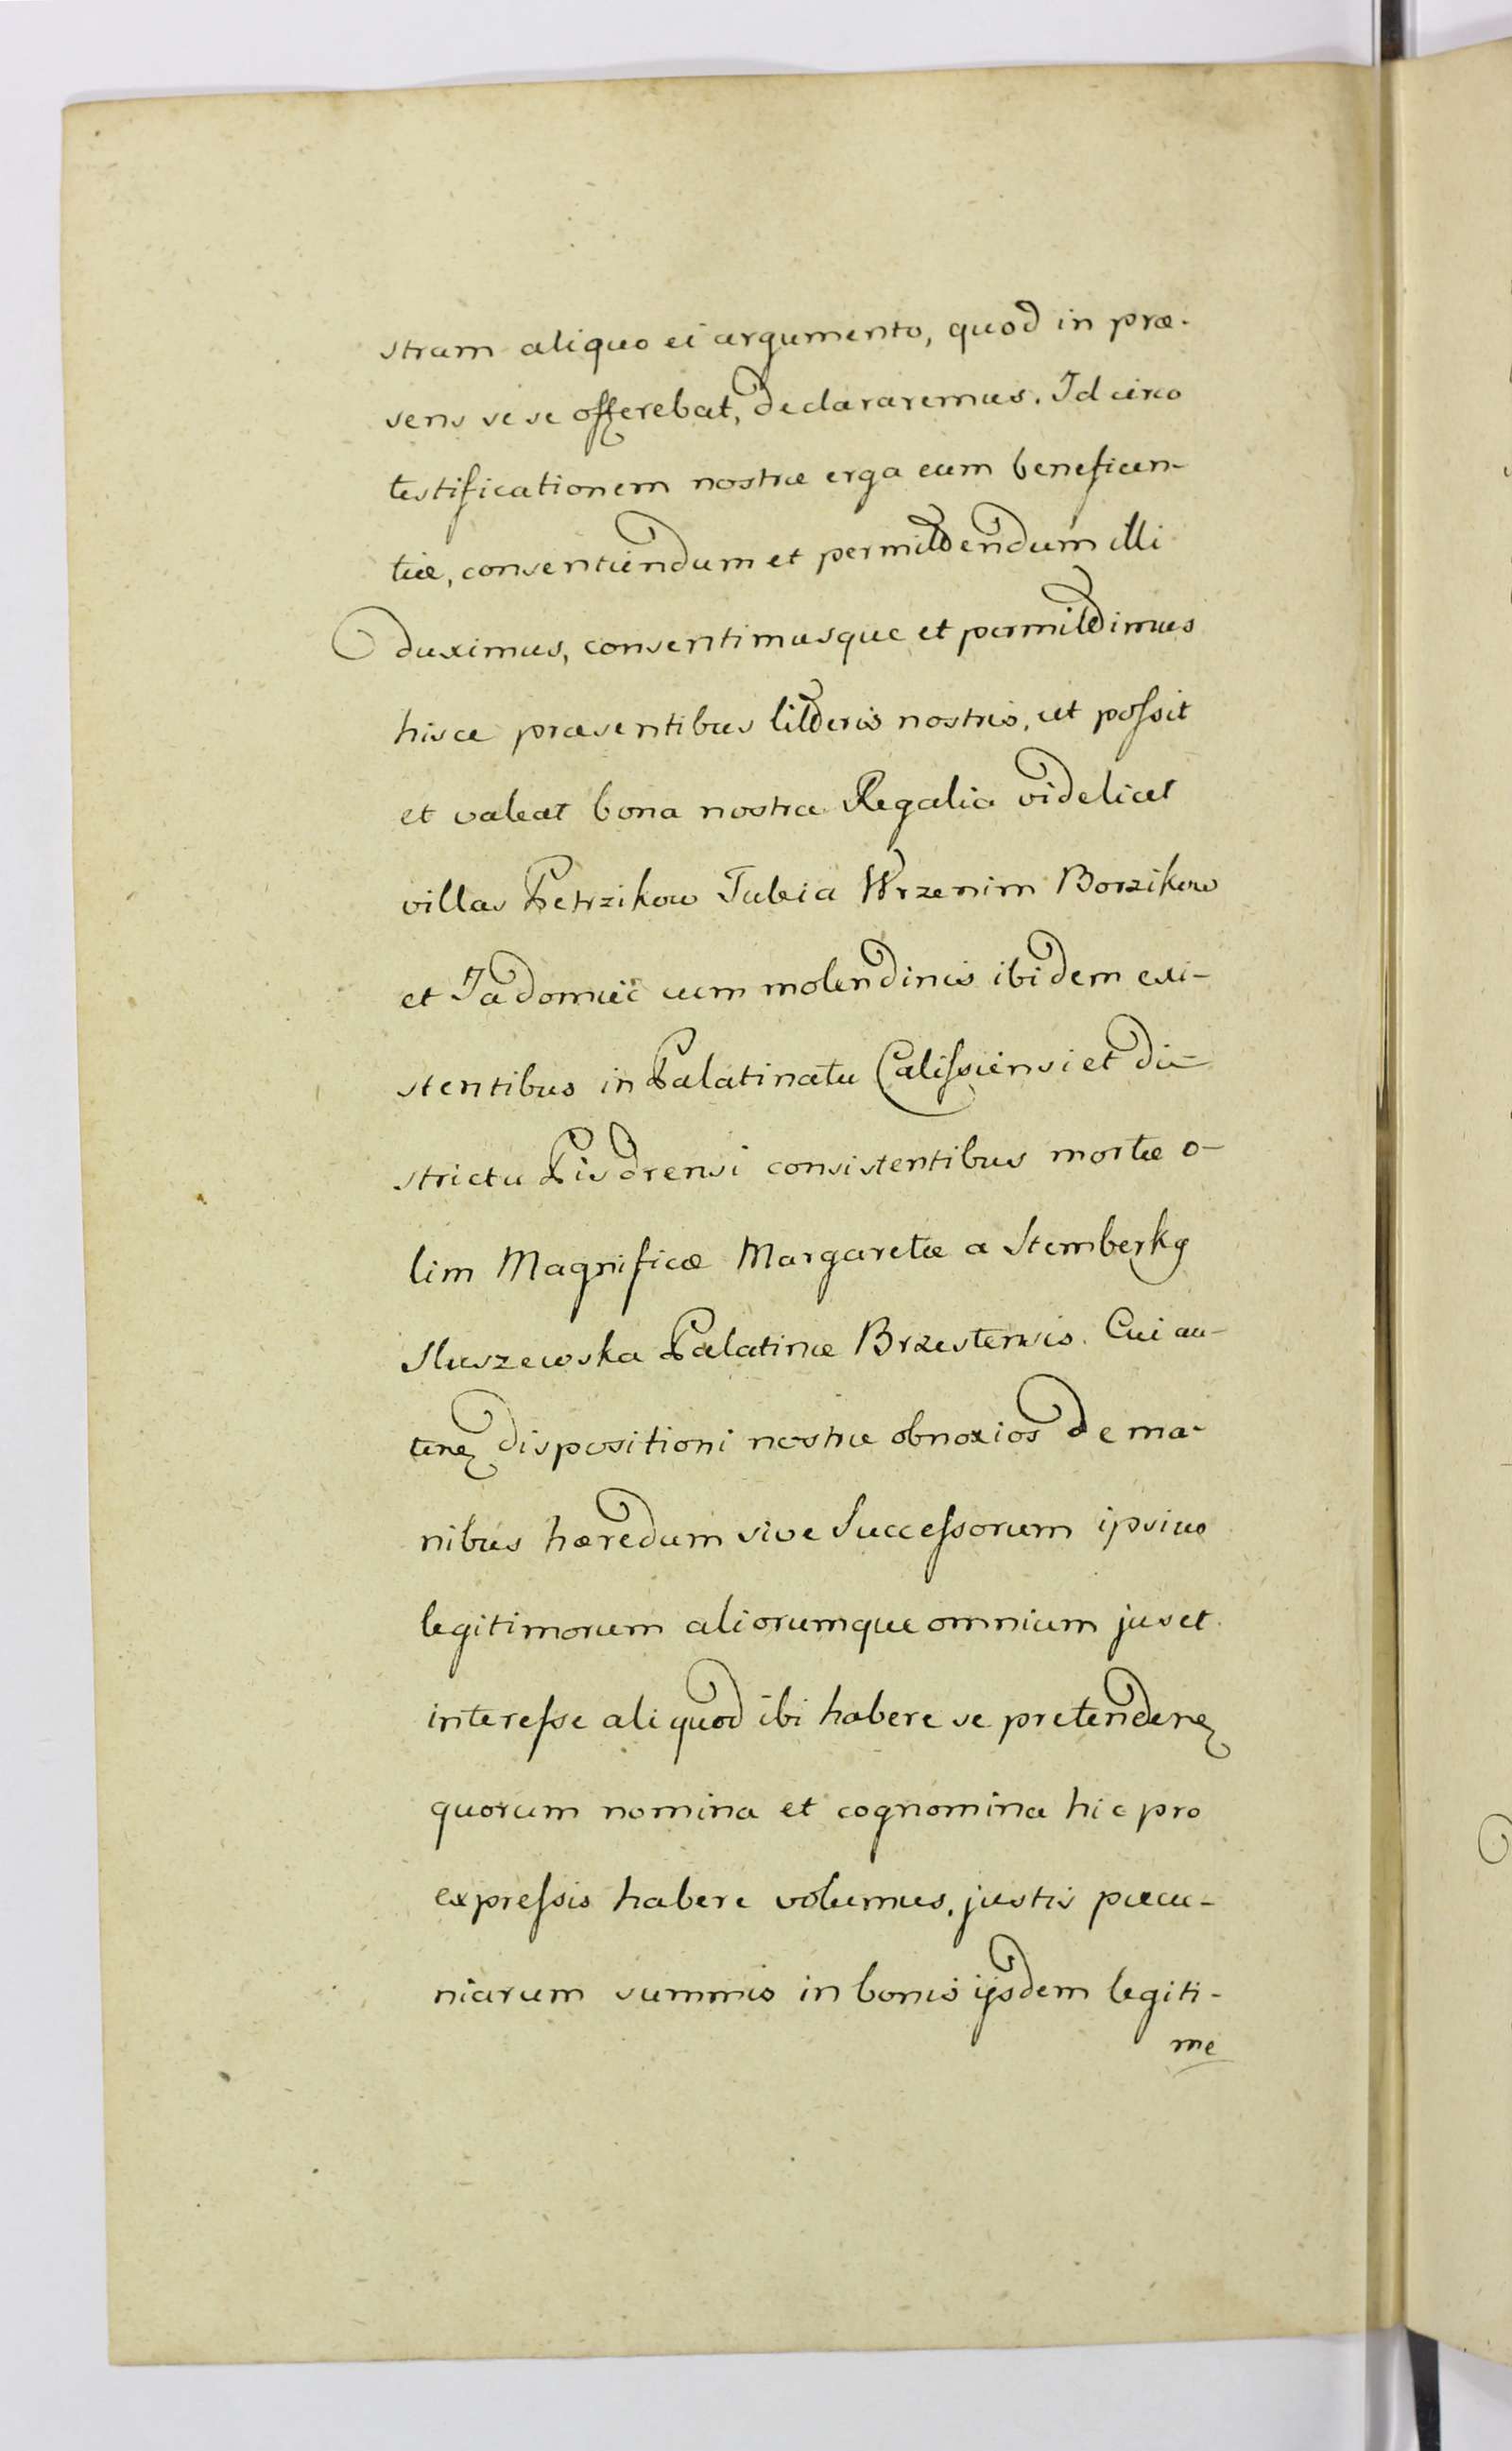 stram aliquo ei argumento, quod in præ-
sens se se offerebat, declararemus. Id circo
testificationem nostræ erga eum beneficen-
tiæ, consentiendum et permittendum illi
duximus, consentimusque et permittimus
hisce præsentibus litteris nostris, ut possit
et valeat bona nostra Regalia videlicet
villas Petrzikow Tuleia Wrzenim Borzikow
et Jadomiec cum molendinis ibidem exi-
stentibus in Palatinatu Calissiensi et di-
strictu Pisdrensi consistentibus morte o-
lim Magnificæ Margaretæ a Stemberkg
Sluszewska Palatinæ Brzestensis. Cui au-
tenq dispositioni nostræ obnoxios de ma-
nibus hæredum sive Successorum ipsius
legitimorum aliorumque omnium jus et
interesse aliquod ibi habere se pretendenq
quorum nomina et cognomina hic pro
expressis habere volumus, justis pecu-
niarum summis in bonis ijsdem legiti-
me